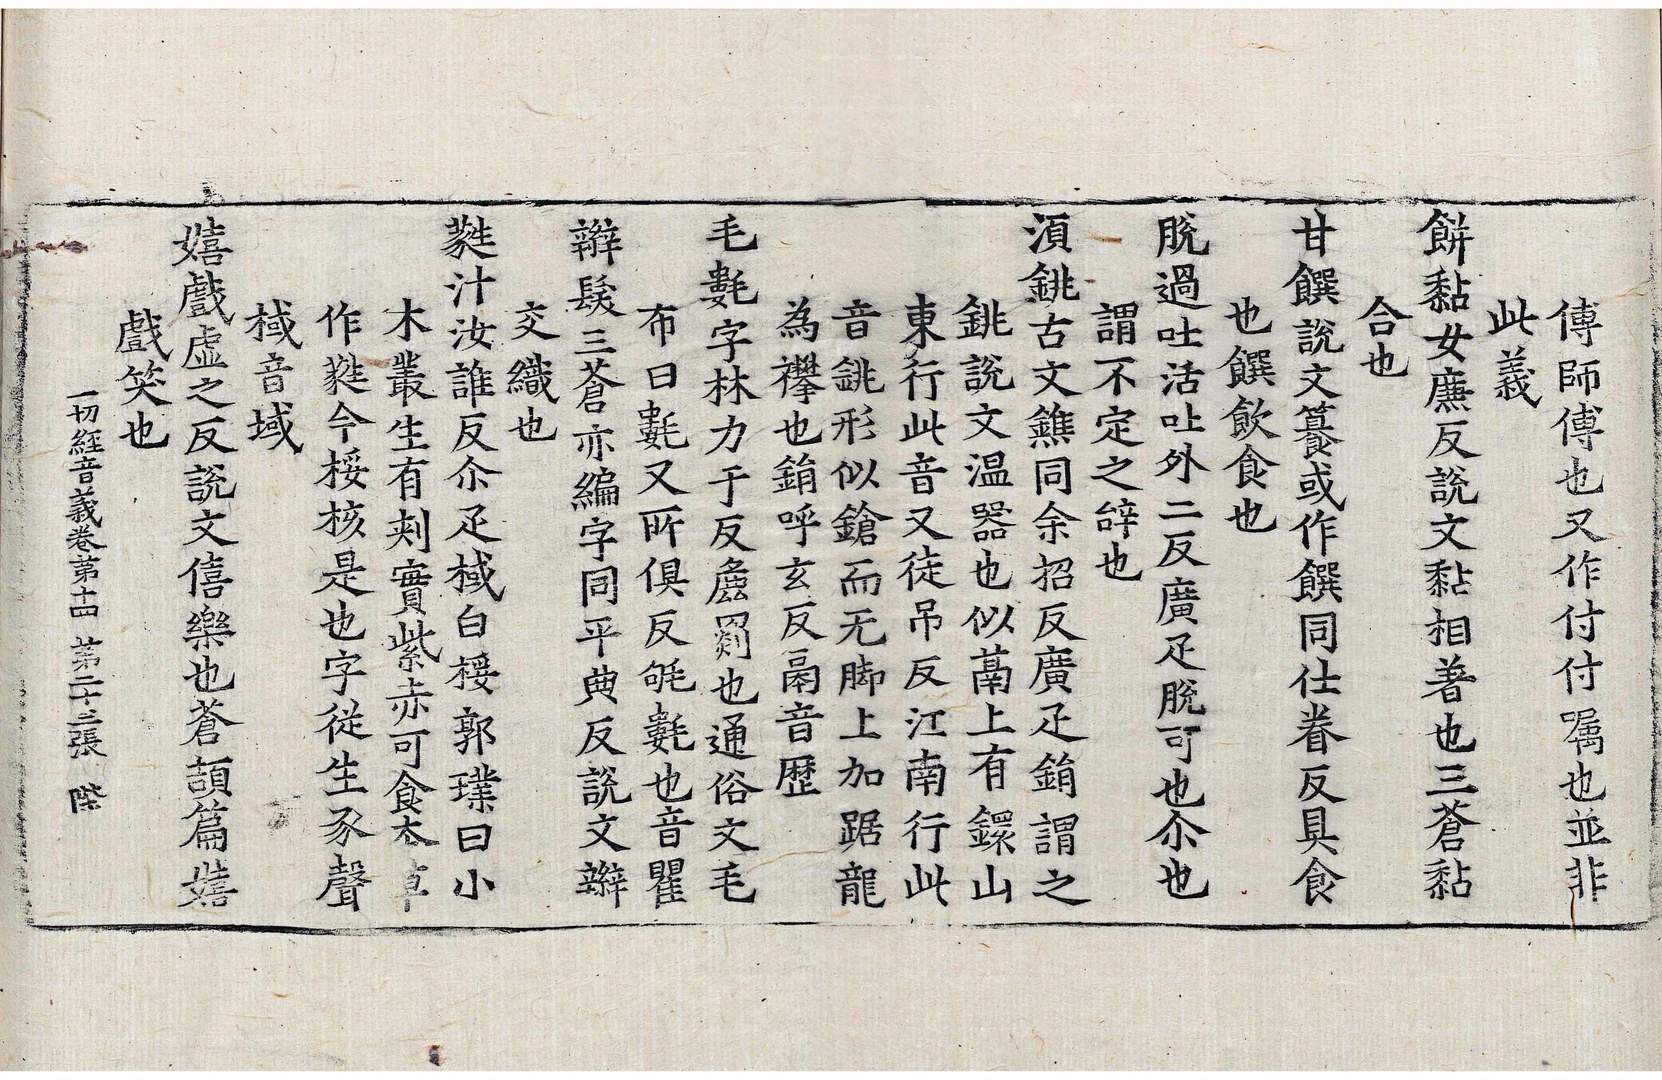 傅師傅也又作付付嘱也並非
此義
餅黏女廉反說文黏相著也三蒼黏
合也
甘饌說文籑或作饌同仕眷反具食
也饌飲食也
脫過吐活吐外二反廣疋脫可也尒也
謂不定之辝也
湏銚古文鐎同余招反廣疋銷謂之
銚說文温器也似鬲上有鐶山
東行此音又徒吊反江南行此
音銚形似鎗而无脚上加踞龍
為攀也銷呼玄反鬲音歷
毛㲣字林力于反罽也通俗文毛
布曰㲣又所俱反毾㲣也音瞿
辮髮三蒼亦編字同平典反說文辮
交織也
蕤汁汝誰反尒疋棫白桵郭璞曰小
木叢生有刾實紫赤可食本草
作蕤今桵核是也字從生豕聲
棫音域
嬉戲虛之反說文僖樂也蒼頡篇嬉
戲笑也
一切經音義卷第十四 第二十三張 陛